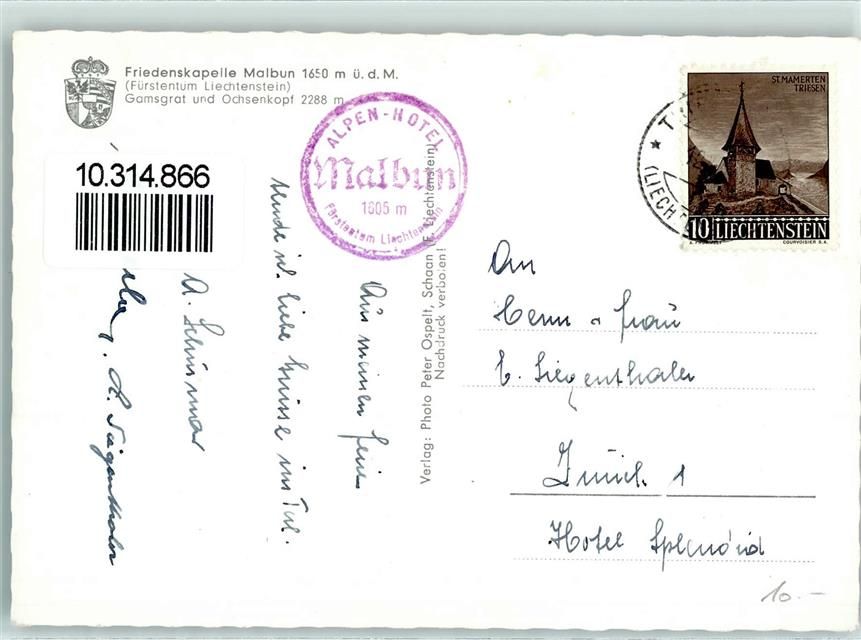 Friedenskapelle Malbun 1650 m ü. d. M.
(Fürstentum Liechtenstein)
Gamsgrat und Ochsenkopf 2288 m
10.314.866
ALPEN-HOTEL
Malbun
1605 m
Fürstentum Liechtenstein
ST. MAMERTEN
TRIESEN
10 LIECHTENSTEIN
COURVOISIER S.A.
(LIECH
Verlag: Photo Peter Ospelt, Schaan (F. Liechtenstein)
Nachdruck verboten!
Aus meinen
liebe Grüsse ins Tal.
A.
An
Herrn u Frau
E. Siegenthaler
Zürich 1
Hotel Splendid
10.–